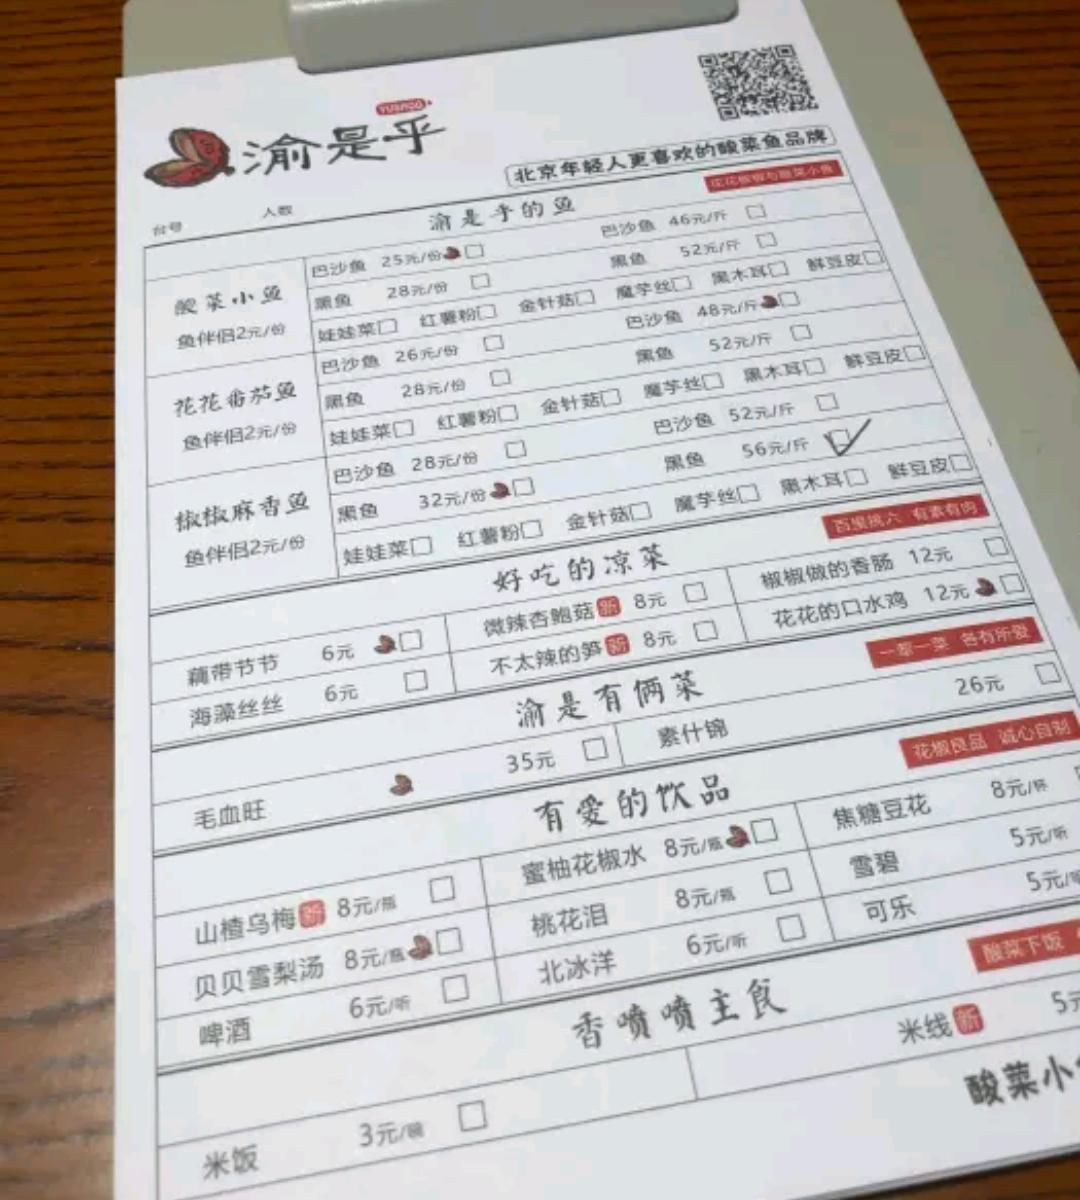 YUSHIHU
渝是乎
北京年轻人更喜欢的酸菜鱼品牌
台号 人数
渝是乎的鱼 花花椒椒与酸菜小鱼
酸菜小鱼
鱼伴侣2元/份
巴沙鱼 25元/份 巴沙鱼 46元/斤
黑鱼 28元/份 黑鱼 52元/斤
娃娃菜 红薯粉 金针菇 魔芋丝 黑木耳 鲜豆皮
花花番茄鱼
鱼伴侣2元/份
巴沙鱼 26元/份 巴沙鱼 48元/斤
黑鱼 28元/份 黑鱼 52元/斤
娃娃菜 红薯粉 金针菇 魔芋丝 黑木耳 鲜豆皮
椒椒麻香鱼
鱼伴侣2元/份
巴沙鱼 28元/份 巴沙鱼 52元/斤
黑鱼 32元/份 黑鱼 56元/斤
娃娃菜 红薯粉 金针菇 魔芋丝 黑木耳 鲜豆皮
好吃的凉菜 百里挑六 有素有肉
藕带节节 6元 微辣杏鲍菇 新 8元 椒椒做的香肠 12元
海藻丝丝 6元 不太辣的笋 新 8元 花花的口水鸡 12元
渝是有俩菜 一荤一菜 各有所爱
毛血旺 35元 素什锦 26元
有爱的饮品 花椒良品 诚心自制
山楂乌梅 新 8元/瓶 蜜柚花椒水 8元/瓶 焦糖豆花 8元/杯
贝贝雪梨汤 8元/瓶 桃花泪 8元/瓶 雪碧 5元/听
啤酒 6元/听 北冰洋 6元/听 可乐 5元/听
香喷喷主食 酸菜下饭
米饭 3元/碗 米线 新 5元
酸菜小